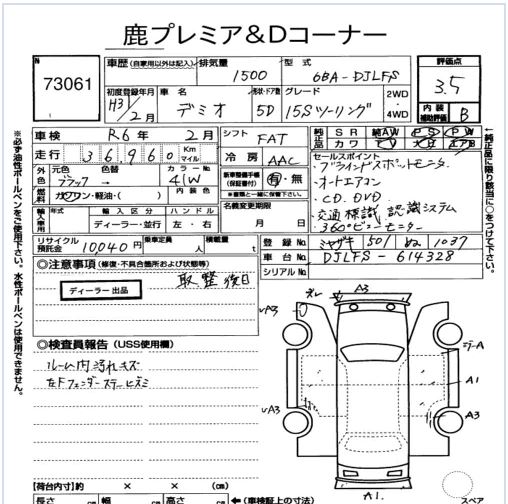 鹿プレミア&Dコーナー
N
73061
車歴 (自家用以外は記入)
排気量
1500
型式
6BA-DJLFS
評価点
3.5
初度登録年月
H31/2月
車名
デミオ
形状・ドア数
5D
グレード
15Sツーリング
2WD
・
4WD
内装
補助評価
B
車検
R6年 2月
シフト
FAT
純正品
SR 純AW PS PW
カワ TV ナビ エアB
走行
36,960
Km
マイル
冷房
AAC
外色
元色
ブラック
色替
カラーNo.
41W
ガソリン・軽油・( )
内装色
新車整備手帳
(保証書付)
有・無
※書類と一緒に保管下さい。
セールスポイント
・ブラインドスポットモニター
・オートエアコン
・CD、DVD
・交通標識認識システム
・360°ビューモニター
輸入車用
年式
輸入区分
ハンドル
ディーラー・並行
左・右
名義変更期限
月 日
リサイクル
預託金
10040円
乗車定員
人
積載量
t
登録No.
ミヤザキ 501 ぬ 1037
車台No.
DJLFS-614328
シリアルNo.
◎注意事項 (修復・不具合箇所および状態等)
ディーラー出品
取整後日
◎検査員報告 (USS使用欄)
ルーム内汚れキズ
左Fフェンダーステーヒズミ
A3
ズレ
✓A3
A1
A3
✓A3
A1.
【荷台内寸】約 × × (cm)
長さ cm
幅 cm
高さ cm
←(車検証上の寸法)
スペア
※必ず油性ボールペンをご使用下さい。水性ボールペンは使用できません。
←純正品に限り該当に○をつけて下さい。